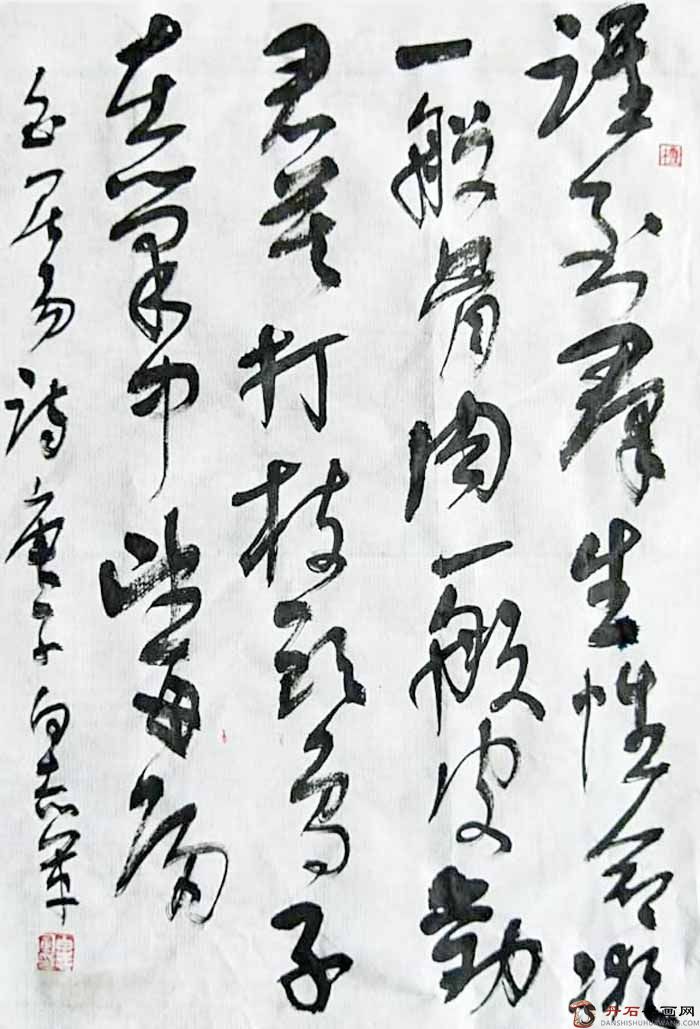 谁道群生性命微
一般骨肉一般皮劝
君莫打枝头鸟子
在巢中望母归
白居易诗庚子白志军
丹石书画网
DANSHISHUHUAWANG.COM